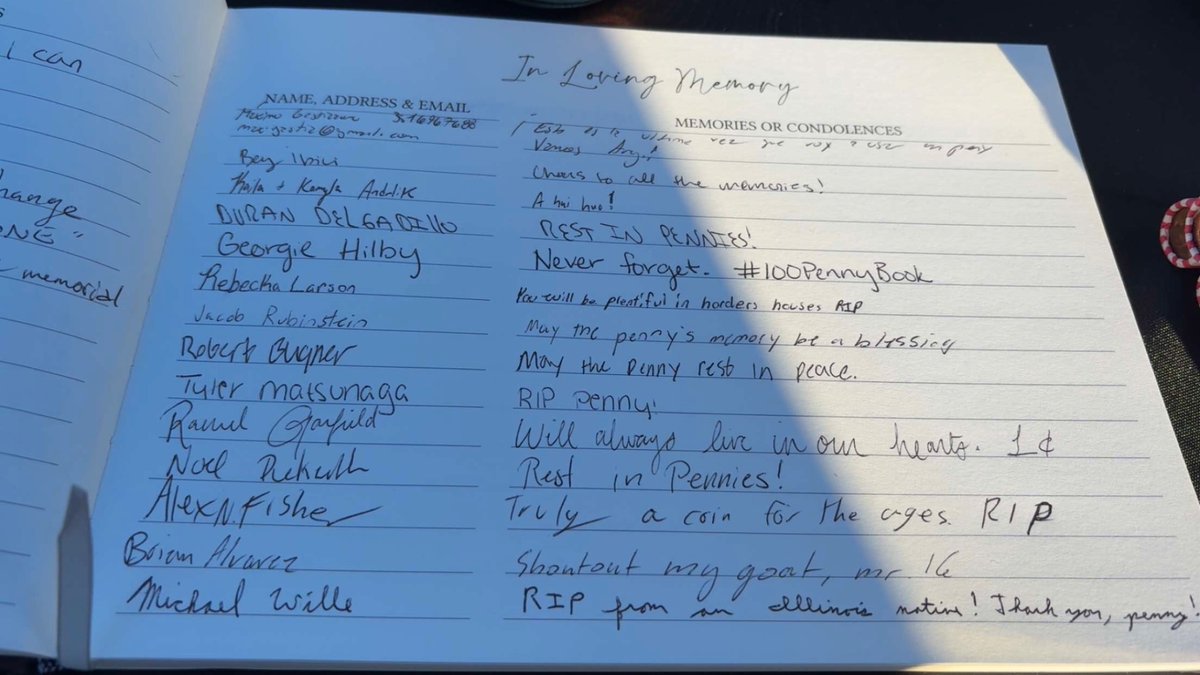 s
I can
hange
ONE"
memorial
In Loving Memory
NAME, ADDRESS & EMAIL
MEMORIES OR CONDOLENCES
Maximo
@gmail.com
Esta es la ultima vez que voy a usar un peny
Vamos Arg!
Benj
Cheers to all the memories!
Kaila + Kayla
A hui hou!
DURAN DELGADILLO
REST IN PENNIES!
Georgie Hilby
Never forget. #100PennyBook
Rebecka Larson
You will be plentiful in horders houses RIP
Jacob Rubinstein
May the penny's memory be a blessing
Robert Bugner
May the penny rest in peace.
Tyler Matsunaga
RIP Penny!
Rachel Garfield
Will always live in our hearts. 1¢
Noel
Rest in Pennies!
Alex N. Fisher
Truly a coin for the ages. RIP
Brian Alvarez
Shoutout my goat, mr. 1¢
Michael Wille
RIP from an Illinois native! Thank you, penny!